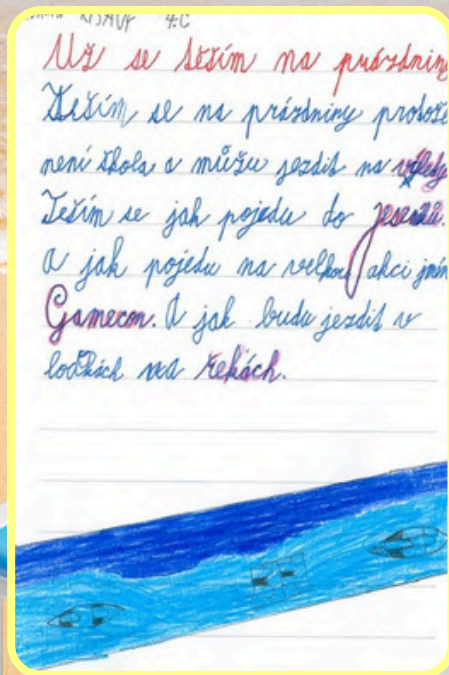 4.C
Už se těším na prázdniny
Těším se na prázdniny protože
není škola a můžu jezdit na výlety
Těším se jak pojedu do Jeseníků.
A jak pojedu na velkou akci jmén
Gamecon. A jak budu jezdit v
loďkách na řekách.